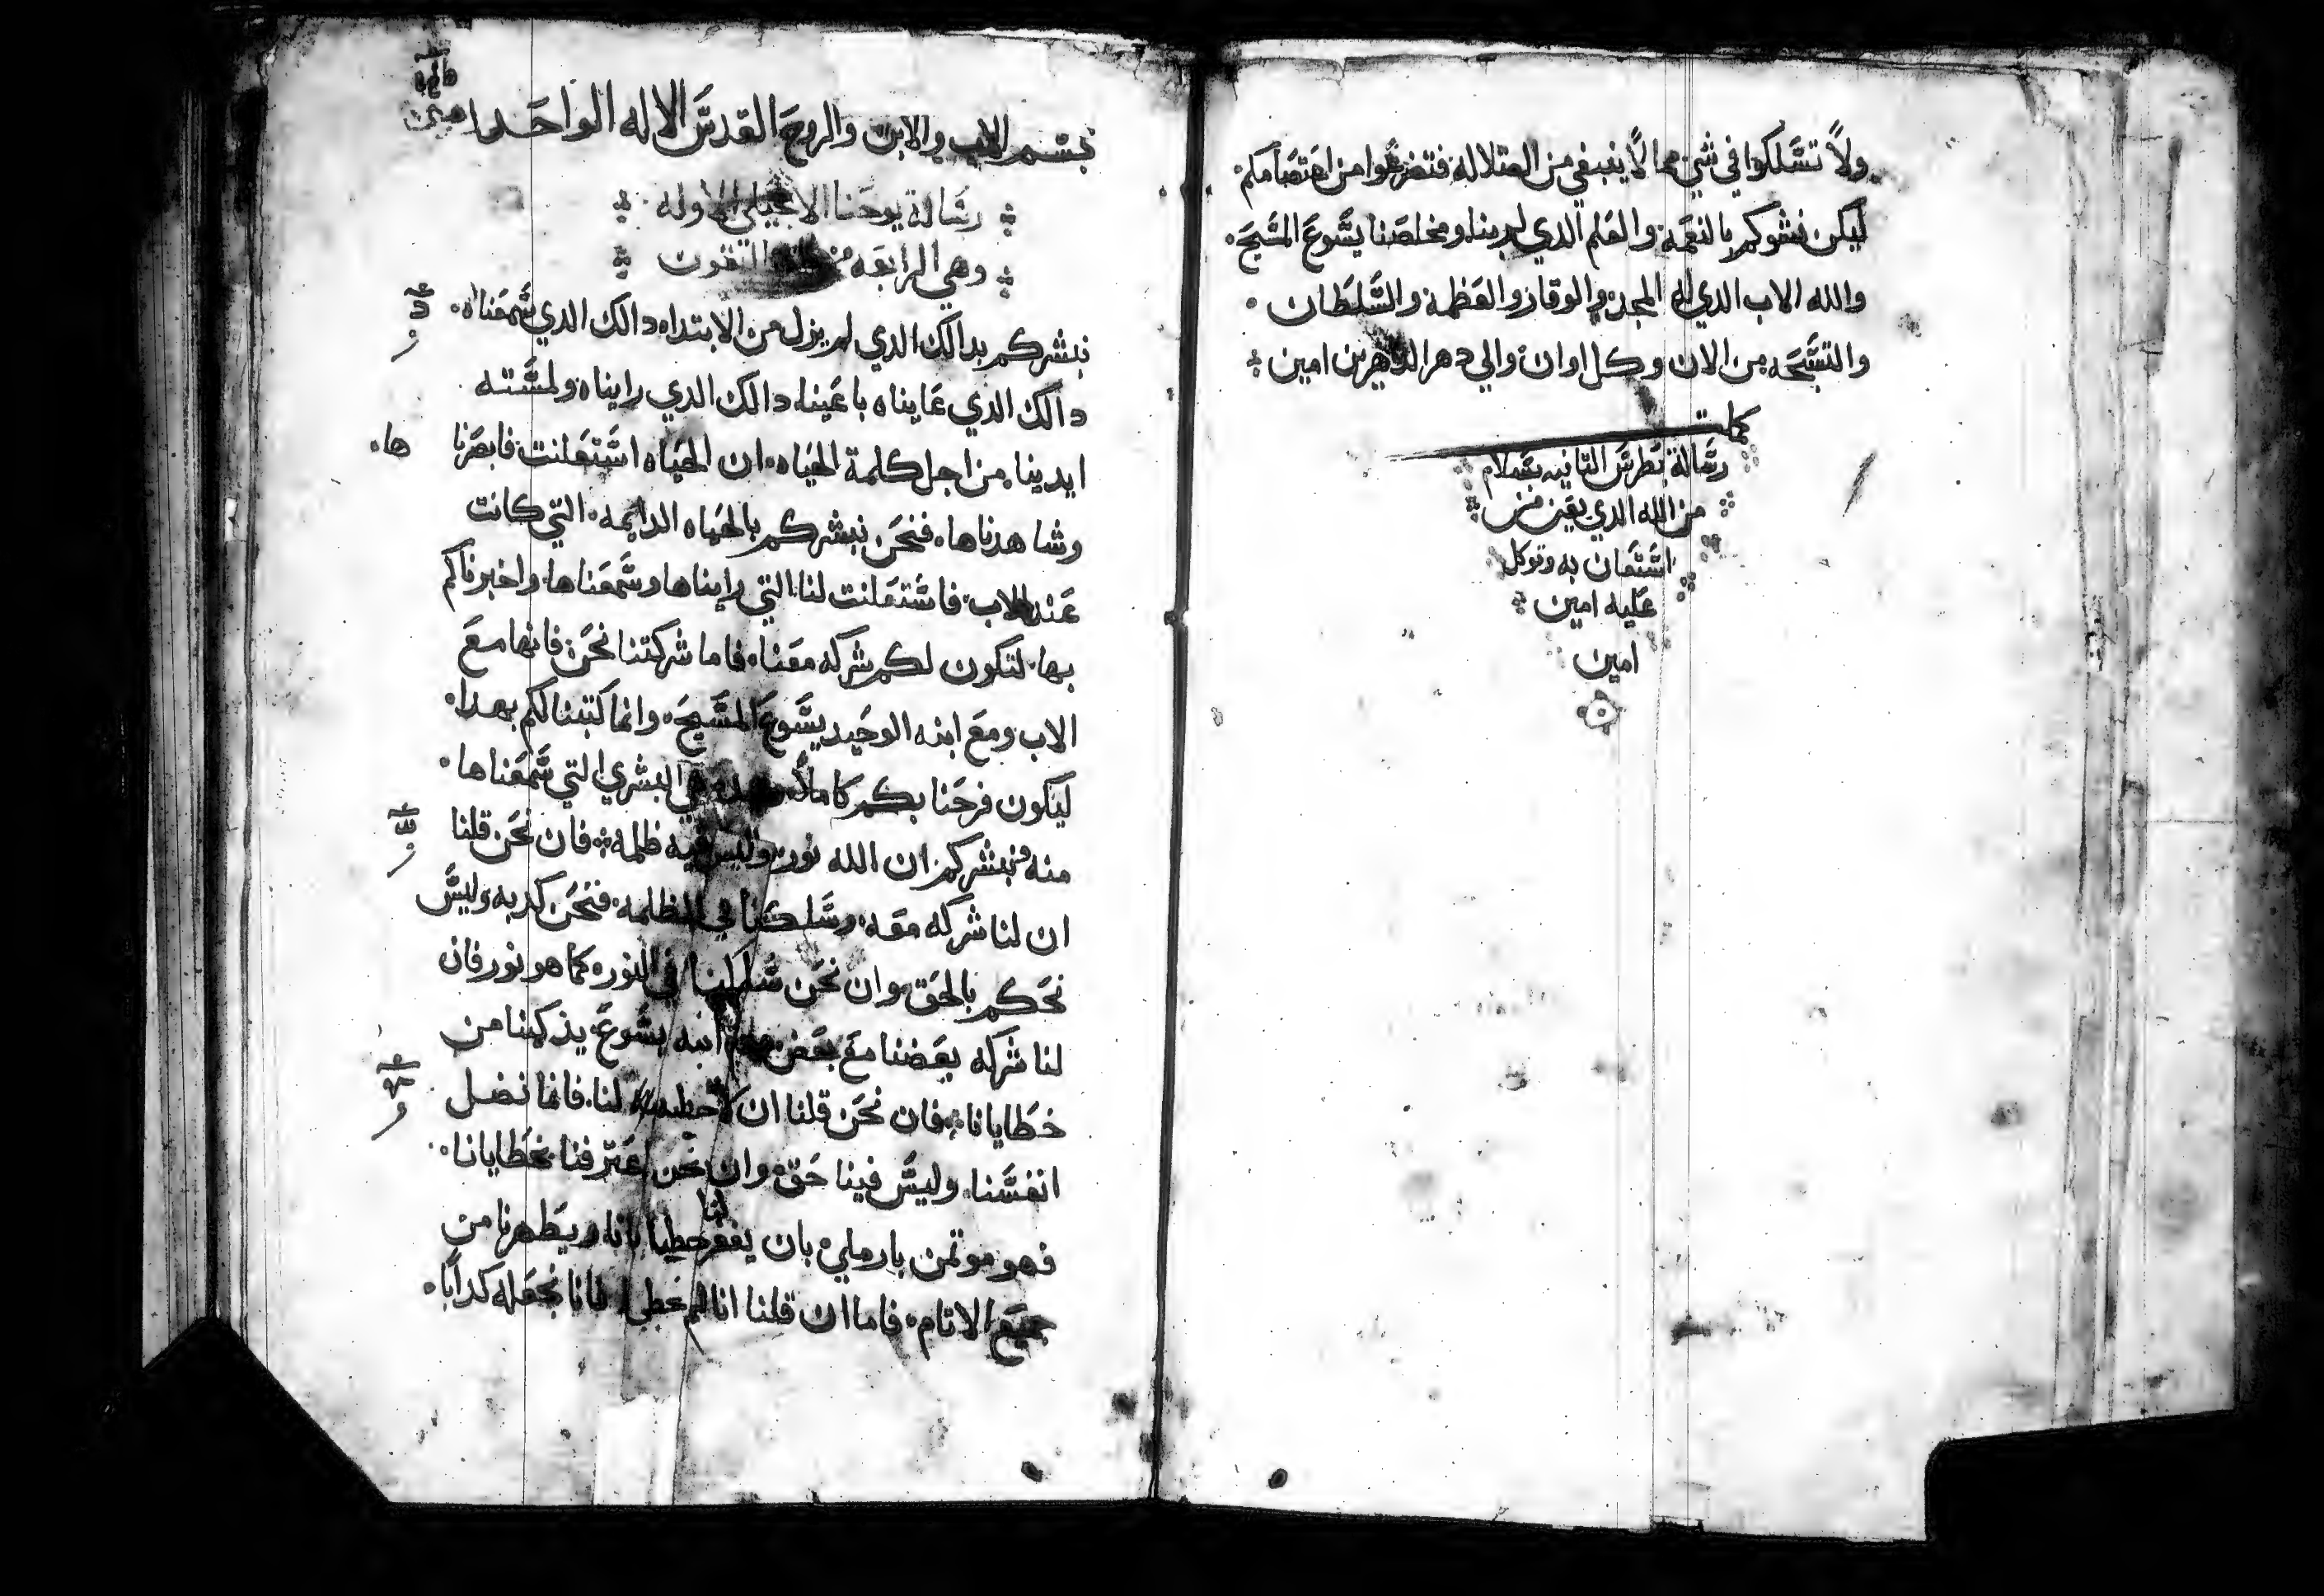 ولا تسلكوا في شي مما لا ينبغي من الضلاله فتضرعوا من اعتصامكم
ليكن نشوكم بالنعمه والعلم الدي لربنا ومخلصنا يسوع المسيح
والله الاب الدي له المجد والوقار والعظمه والسلطان
والتسبحه من الان وكل اوان والي دهر الداهرين امين
كملت
رساله بطرس التانيه بسلام
من الله الدي يعين من
استعان به وتوكل
عليه امين
امين
بسم الاب والابن والروح القدس الاله الواحد امين
رساله يوحنا الانجيلي الاوله
وهي الرابعه من القتاليقون
نبشركم بدالك الدي لم يزل من الابتداء دالك الدي سمعناه
دالك الدي عايناه باعيننا دالك الدي رايناه ولمسته
ايدينا من اجل كلمة الحياه ان الحياه استعلنت فابصرنا ها
وشاهدناها فنحن نبشركم بالحياه الدايمه التي كانت
عند الاب فاستعلنت لنا التي رايناها وسمعناها واخبرناكم
بها لتكون لكم شركه معنا فاما شركتنا نحن فانها مع
الاب ومع ابنه الوحيد يسوع المسيح وانما كتبنا لكم بهدا
ليكون فرحنا بكم كاملا وهده هي البشري التي سمعناها
منه ونبشركم ان الله نور وليس فيه ظلمه فان نحن قلنا
ان لنا شركه معه وسلكنا في الظلمه فنحن كدبه وليس
نحكم بالحق وان نحن سلكنا في النور كما هو نور فان
لنا شركه بعضنا مع بعض ودم ابنه يسوع يزكينا من
خطايانا فان نحن قلنا ان لا خطيه لنا فانما نضل
انفسنا وليس فينا حق وان نحن اعترفنا بخطايانا
فهو موتمن بار ملي بان يغفر لنا خطايانا ويطهرنا من
جميع الاتام فاما ان قلنا انا لم نخطي فانا نجعله كدابا